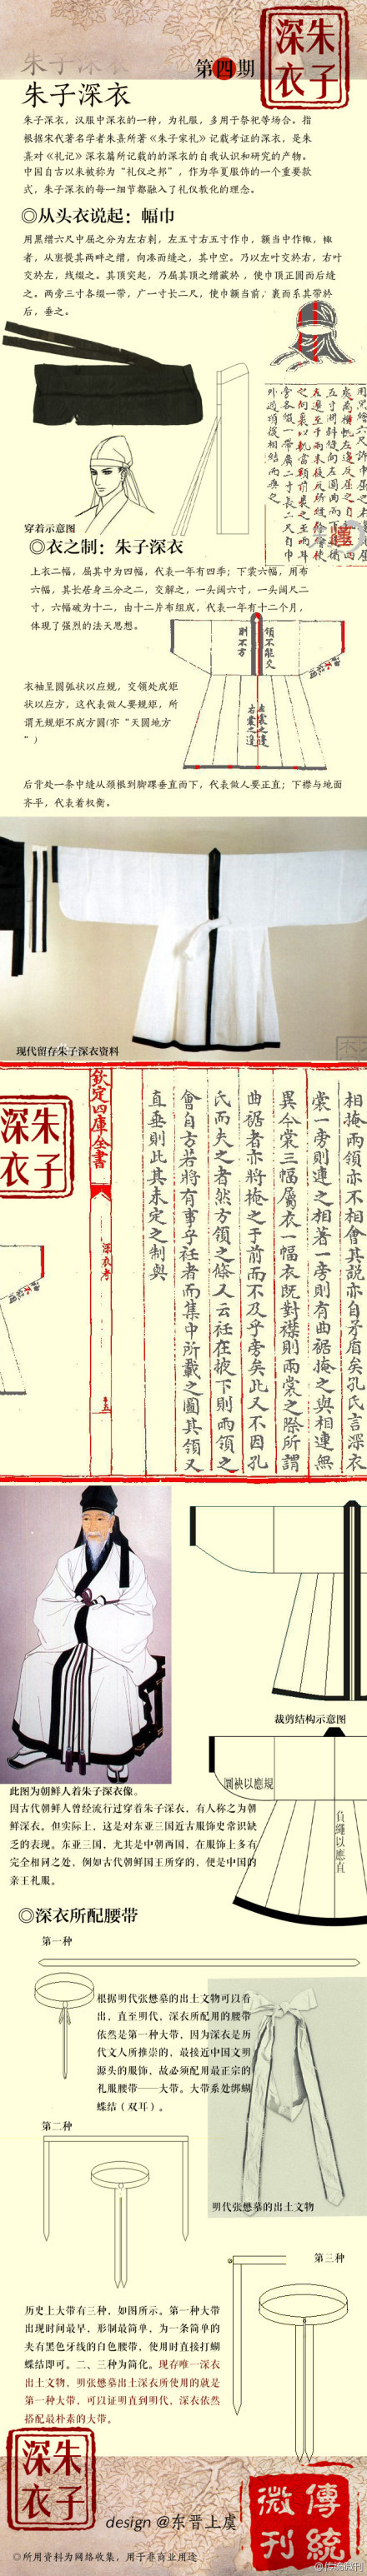 朱子深衣
第四期
朱子深衣
朱子深衣
朱子深衣，汉服中深衣的一种，为礼服，多用于祭祀等场合。指
根据宋代著名学者朱熹所著《朱子家礼》记载考证的深衣，是朱
熹对《礼记》深衣篇所记载的的深衣的自我认识和研究的产物。
中国自古以来被称为“礼仪之邦”，作为华夏服饰的一个重要款
式，朱子深衣的每一细节都融入了礼仪教化的理念。
◎从头衣说起：幅巾
用黑缯六尺中屈之分为左右刺，左五寸右五寸作巾，额当中作㡇，㡇
者，从裏提其两畔之缯，向凑而缝之，其中空。乃以左叶交於右，右叶
交於左，线缀之。其顶突起，乃屈其顶之缯藏於，使巾顶正圆而后缝
之。两旁三寸各缀一带，广一寸长二尺，使巾额当前，裹而系其带於
后，垂之。
穿着示意图
◎衣之制：朱子深衣
上衣二幅，屈其中为四幅，代表一年有四季；下裳六幅，用布
六幅，其长居身三分之二，交解之，一头阔六寸，一头阔尺二
寸，六幅破为十二，由十二片布组成，代表一年有十二个月，
体现了强烈的法天思想。
領不能交
則不方
衣袖呈圆弧状以应规，交领处成矩
状以应方，这代表做人要规矩，所
谓无规矩不成方圆(亦“天圆地方
”）
左裳之邊
右裳之邊
后背处一条中缝从颈根到脚踝垂直而下，代表做人要正直；下襟与地面
齐平，代表着权衡。
现代留存朱子深衣资料
相掩兩領亦不相會其說亦自矛盾矣孔氏言深衣
裳一旁則連之相著一旁則有曲裾掩之與相連無
異今裳三幅屬衣一幅衣既對襟則兩裳之際所謂
曲裾者亦將掩之于前而不及乎旁矣此又不因孔
氏而失之者然方領之條又云衽在掖下則兩領之
會自方若將有事乎衽者而集中所載之圖其領又
直垂則此其未定之制與
欽定四庫全書
深衣考
朱子深衣
此图为朝鲜人着朱子深衣像。
因古代朝鲜人曾经流行过穿着朱子深衣，有人称之为朝
鲜深衣。但实际上，这是对东亚三国近古服饰史常识缺
乏的表现。东亚三国，尤其是中朝两国，在服饰上多有
完全相同之处，例如古代朝鲜国王所穿的，便是中国的
亲王礼服。
裁剪结构示意图
圓袂以應規
負繩以應直
◎深衣所配腰带
第一种
根据明代张懋墓的出土文物可以看
出，直至明代，深衣所配用的腰带
依然是第一种大带，因为深衣是历
代文人所推崇的，最接近中国文明
源头的服饰，故必须配用最正宗的
礼服腰带——大带。大带系处绑蝴
蝶结（双耳）。
第二种
明代张懋墓的出土文物
第三种
历史上大带有三种，如图所示。第一种大带
出现时间最早，形制最简单，为一条简单的
夹有黑色牙线的白色腰带，使用时直接打蝴
蝶结即可。二、三种为简化。现存唯一深衣
出土文物，明张懋墓出土深衣所使用的就是
第一种大带，可以证明直到明代，深衣依然
搭配最朴素的大带。
朱子深衣
design @东晋上虞
傳統微刊
◎所用资料为网络收集，用于非商业用途
@传统微刊